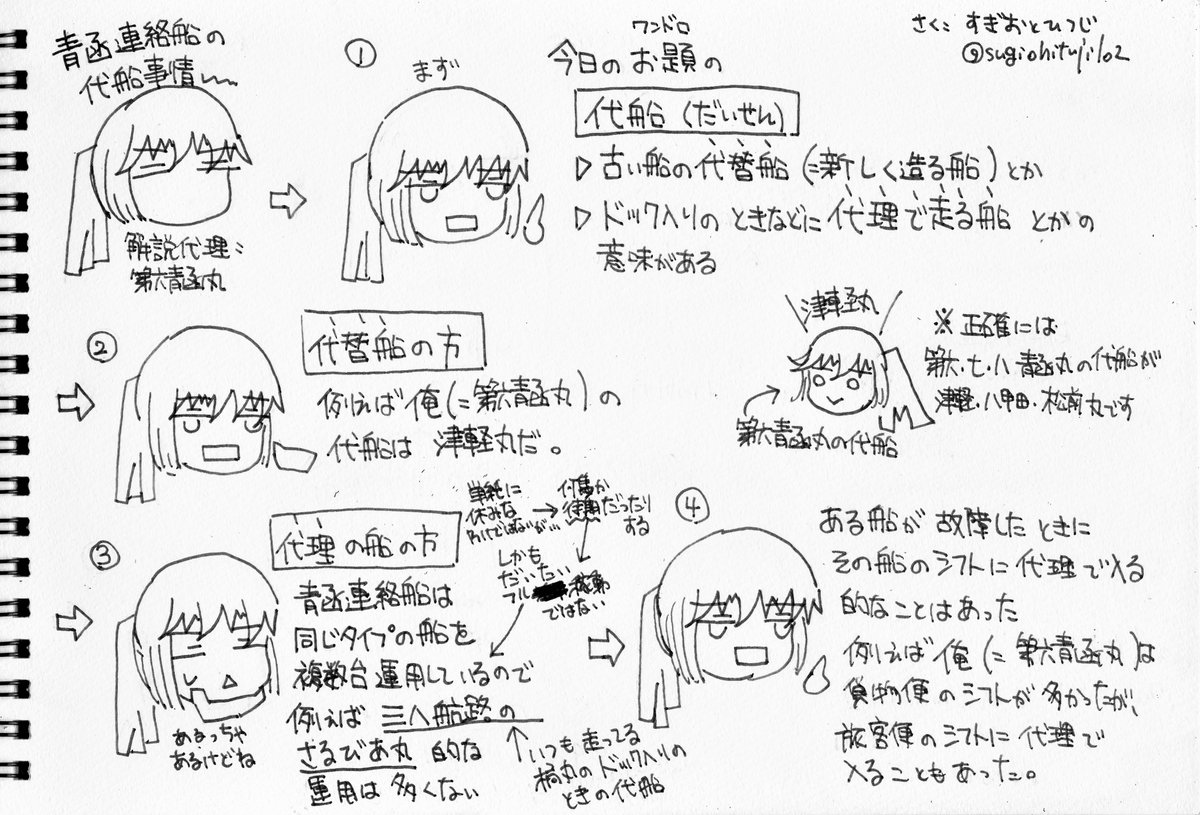 青函連絡船の
代船事情
解説代理:
第六青函丸
さく: すぎおとひつじ
@sugiohituji102
①
まず
ワンドロ
今日のお題の
代船(だいせん)
▷古い船の代替船(=新しく造る船)とか
▷ドック入りのときなどに代理で走る船とかの
意味がある
②
代替船の方
例えば俺(=第六青函丸)の
代船は津軽丸だ。
津軽丸
第六青函丸の代船
※正確には
第六・七・八青函丸の代船が
津軽・八甲田・松前丸です
③
代理の船の方
青函連絡船は
同じタイプの船を
複数台運用しているので
例えば三八航路の
さるびあ丸的な
運用は多くない
あるっちゃ
あるけどね
単純に
休みな
わけではないが…
何隻か
待機だったり
する
しかも
だいたい
フル稼動
ではない
いつも走ってる
橘丸のドック入りの
ときの代船
④
ある船が故障したときに
その船のシフトに代理で入る
的なことはあった
例えば俺(=第六青函丸)は
貨物便のシフトが多かったが、
旅客便のシフトに代理で
入ることもあった。